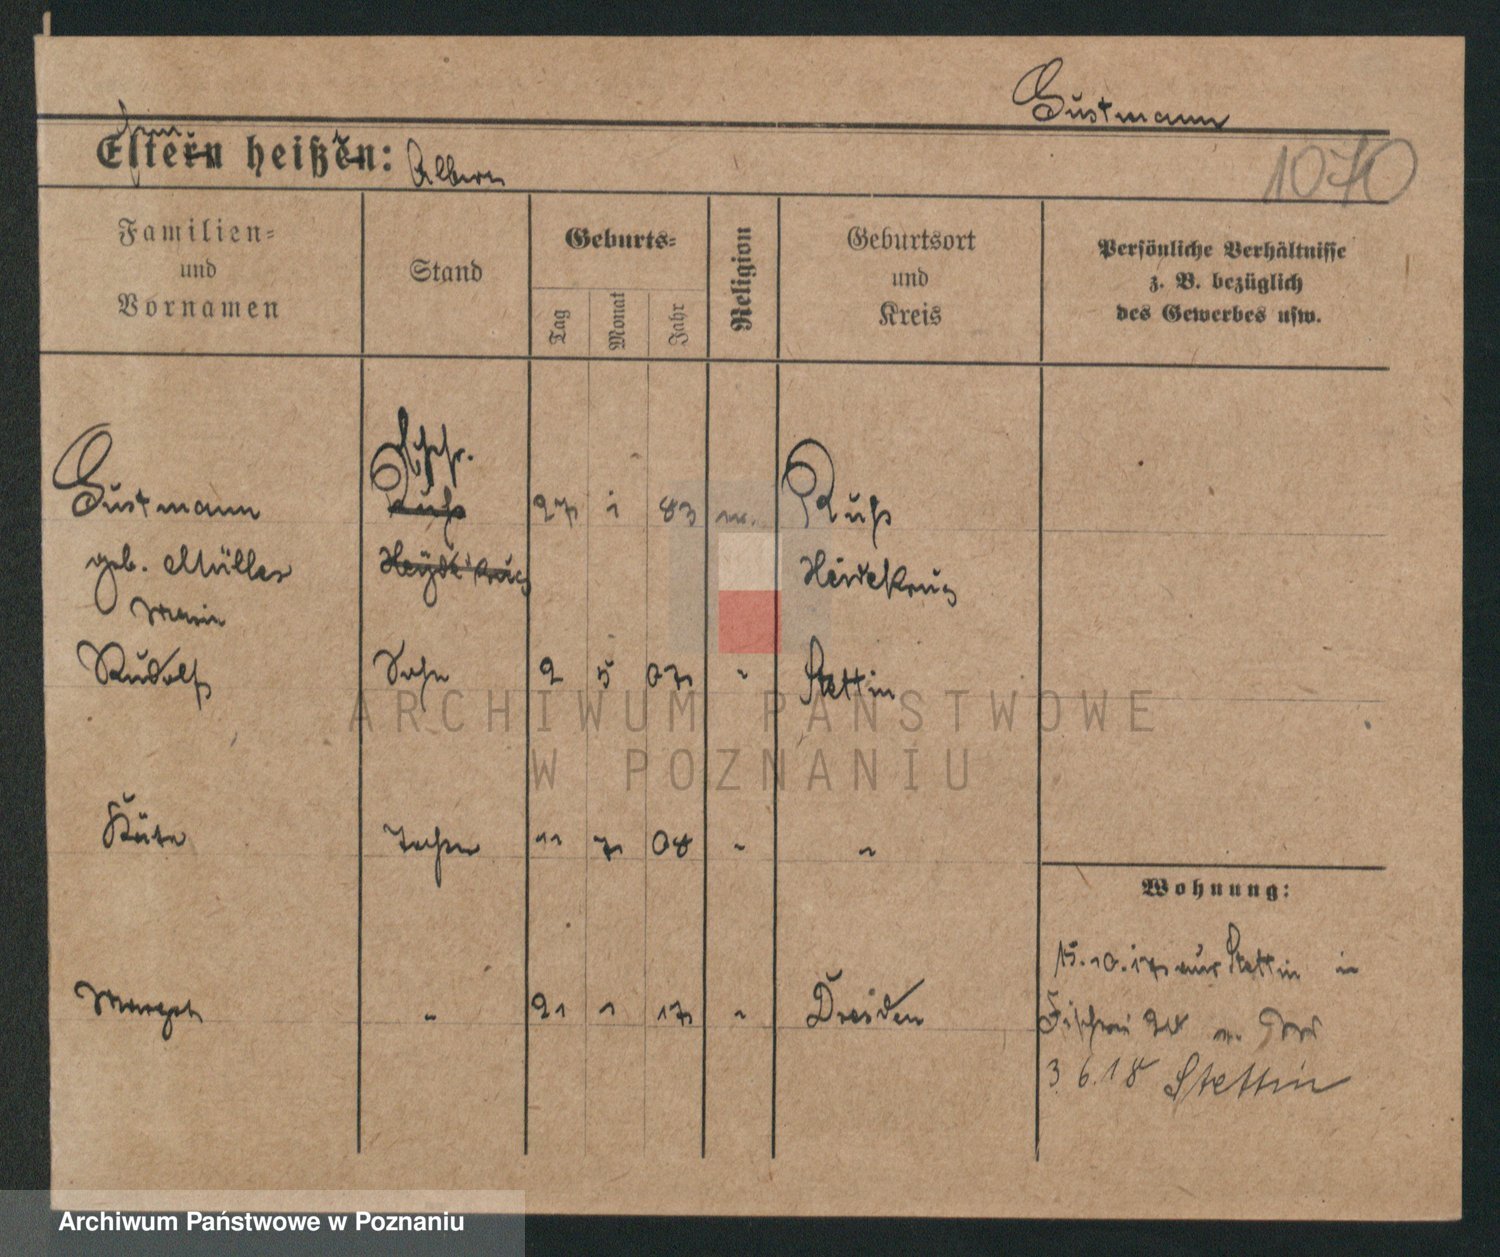 Gustmann
Eltern heißen:
1070
Familien=
und
Vornamen
Stand
Geburts=
Tag
Monat
Jahr
Religion
Geburtsort
und
Kreis
Persönliche Verhältnisse
z. B. bezüglich
des Gewerbes usw.
Gustmann
27 1 83
Ruß
geb. Müller
Heydekrug
Heidekrug
Marie
Rudolf Sohn 2 5 07 " Stettin
ARCHIWUM PAŃSTWOWE
W POZNANIU
Käte 11 7 08 " "
Wohnung:
15.10.17 aus Stettin in
Margot " 21 1 17 " Dresden
Fischerei
3.6.18 Stettin
Archiwum Państwowe w Poznaniu